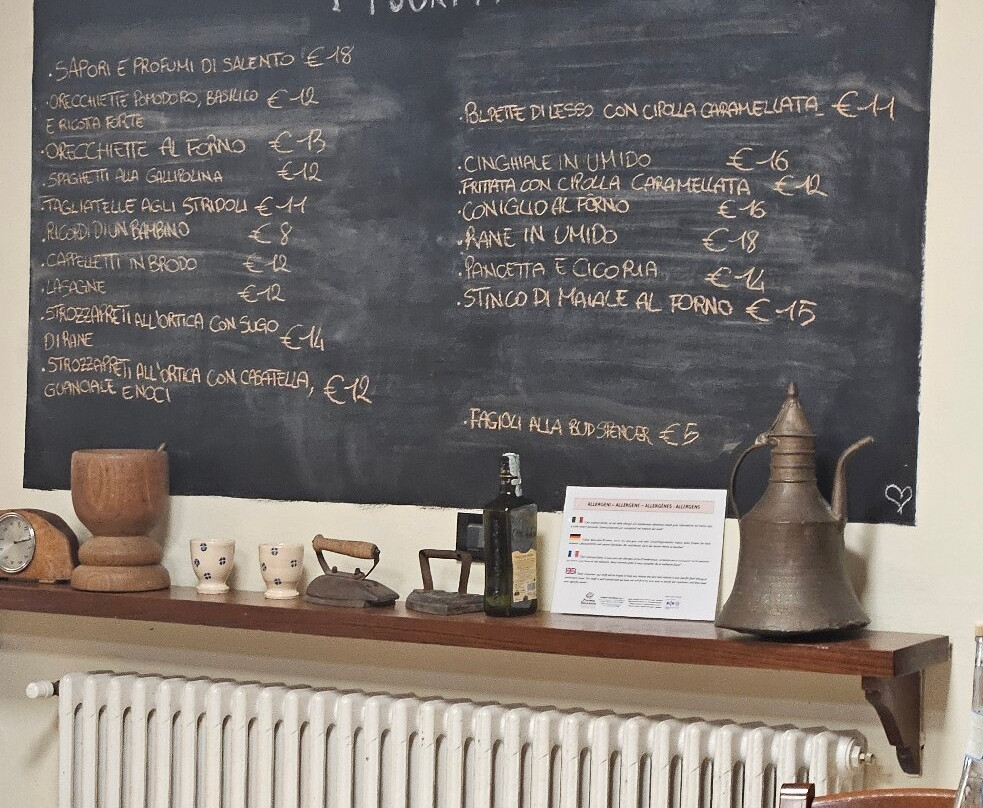 • SAPORI E PROFUMI DI SALENTO €18
• ORECCHIETTE POMODORO, BASILICO €12
E RICOTA FORTE
• ORECCHIETTE AL FORNO €13
• SPAGHETTI ALLA GALLIPOLINA €12
• TAGLIATELLE AGLI STRIDOLI €11
• RICORDI DI UN BAMBINO €8
• CAPPELLETTI IN BRODO €12
• LASAGNE €12
• STROZZAPRETI ALL'ORTICA CON SUGO
DI RANE €14
• STROZZAPRETI ALL'ORTICA CON CASATELLA, €12
GUANCIALE E NOCI
• POLPETTE DI LESSO CON CIPOLLA CARAMELLATA €11
• CINGHIALE IN UMIDO €16
• FRITTATA CON CIPOLLA CARAMELLATA €12
• CONIGLIO AL FORNO €16
• RANE IN UMIDO €18
• PANCETTA E CICORIA €14
• STINCO DI MAIALE AL FORNO €15
• FAGIOLI ALLA BUD SPENCER €5
ALLERGENI - ALLERGENE - ALLERGÈNES - ALLERGENS